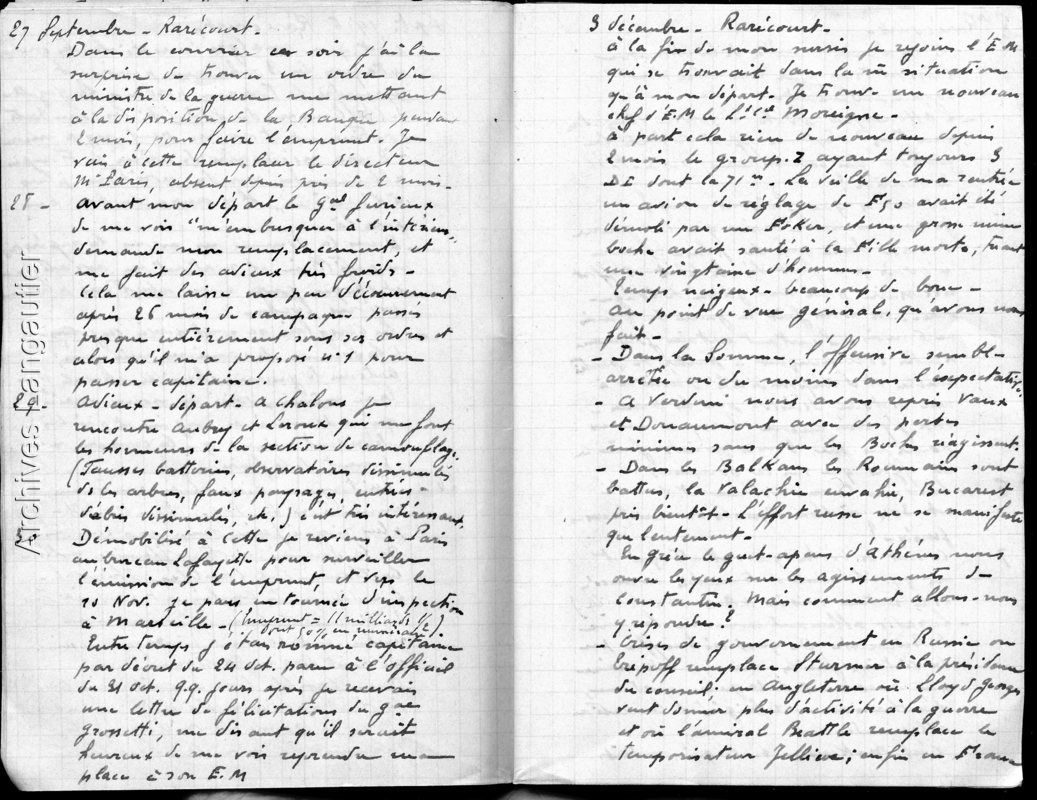 27 Septembre - Rarécourt -
Dans le courrier ce soir j'ai la
surprise de trouver un ordre du
ministre de la guerre me mettant
à la disposition de la Banque pendant
2 mois, pour faire l'emprunt. Je
vais à cette remplacer le directeur
Mr Paris, absent depuis près de 2 mois -
28 - Avant mon départ le Gal furieux
de me voir "m'embusquer à l'intérieur"
demande mon remplacement, et
me fait des adieux très froids -
Cela me laisse un peu d'écœurement
après 26 mois de campagne passés
presque entièrement sous ses ordres et
alors qu'il m'a proposé n°1 pour
passer capitaine.
29 - Adieux - départ - A Chalons je
rencontre Aubry et Leroux qui me font
les honneurs de la section de camouflage.
(Fausses batteries, observatoires dissimulés
ds les arbres, faux paysages, entrées
d'abris dissimulés, etc.) c'est très intéressant
30 - Démobilisé à Cette je reviens à Paris
au bureau Lafayette pour surveiller
l'émission de l'emprunt, et vers le
10 Nov. je pars en tournée d'inspection
à Marseille - (Emprunt = 11 milliards 1/2)
dont 50% en numéraire.
Entre temps j'étais nommé capitaine
par décret du 24 Oct. paru à l'officiel
du 31 Oct. qq. jours après je recevais
une lettre de félicitations du Gal
Grossetti, me disant qu'il serait
heureux de me voir reprendre ma
place à son E.M
3 décembre - Rarécourt -
à la fin de mon sursis je rejoins l'E.M
qui se trouvait dans la m situation
qu'à mon départ. Je trouve un nouveau
chef d'E.M le Lt Cl Moreigne -
à part cela rien de nouveau depuis
2 mois le group. Z ayant toujours 3
DI dont la 71me - La veille de ma rentrée
un avion de réglage de F50 avait été
démoli par un Foker, et une grosse mine
boche avait sauté à la Fille morte, tuant
une vingtaine d'hommes -
Temps neigeux - beaucoup de boue -
Au point de vue général, qu'avons nous
fait -
- Dans la Somme, l'offensive semble
arrêtée ou du moins dans l'expectative.
- A Verdun nous avons repris Vaux
et Douaumont avec des pertes
minimes sans que les Boches réagissent.
- Dans les Balkans les Roumains sont
battus, la Valachie envahie, Bucarest
pris bientôt - L'effort russe ne se manifeste
que lentement -
En Grèce le guet-apens d'Athènes nous
ouvre les yeux sur les agissements de
Constantin. Mais comment allons-nous
y répondre ?
- Crises de gouvernement en Russie où
Trepoff remplace Sturmer à la présidence
du conseil ; en Angleterre où Lloyd Georges
veut donner plus d'activité à la guerre
et où l'amiral Beattle remplace le
temporisateur Jellicoe ; enfin en France
Archives-sangautier